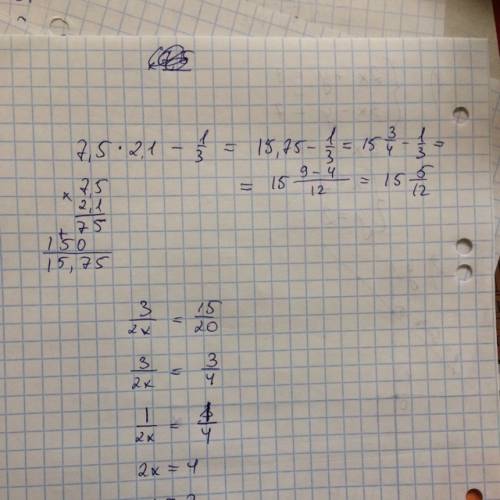 7,5 · 2,1 - 1/3 = 15,75 - 1/3 = 15 3/4 - 1/3 =
= 15 (9-4)/12 = 15 5/12
× 7,5
2,1
+ 75
150
15,75
3/2x = 15/20
3/2x = 3/4
1/2x = 1/4
2x = 4